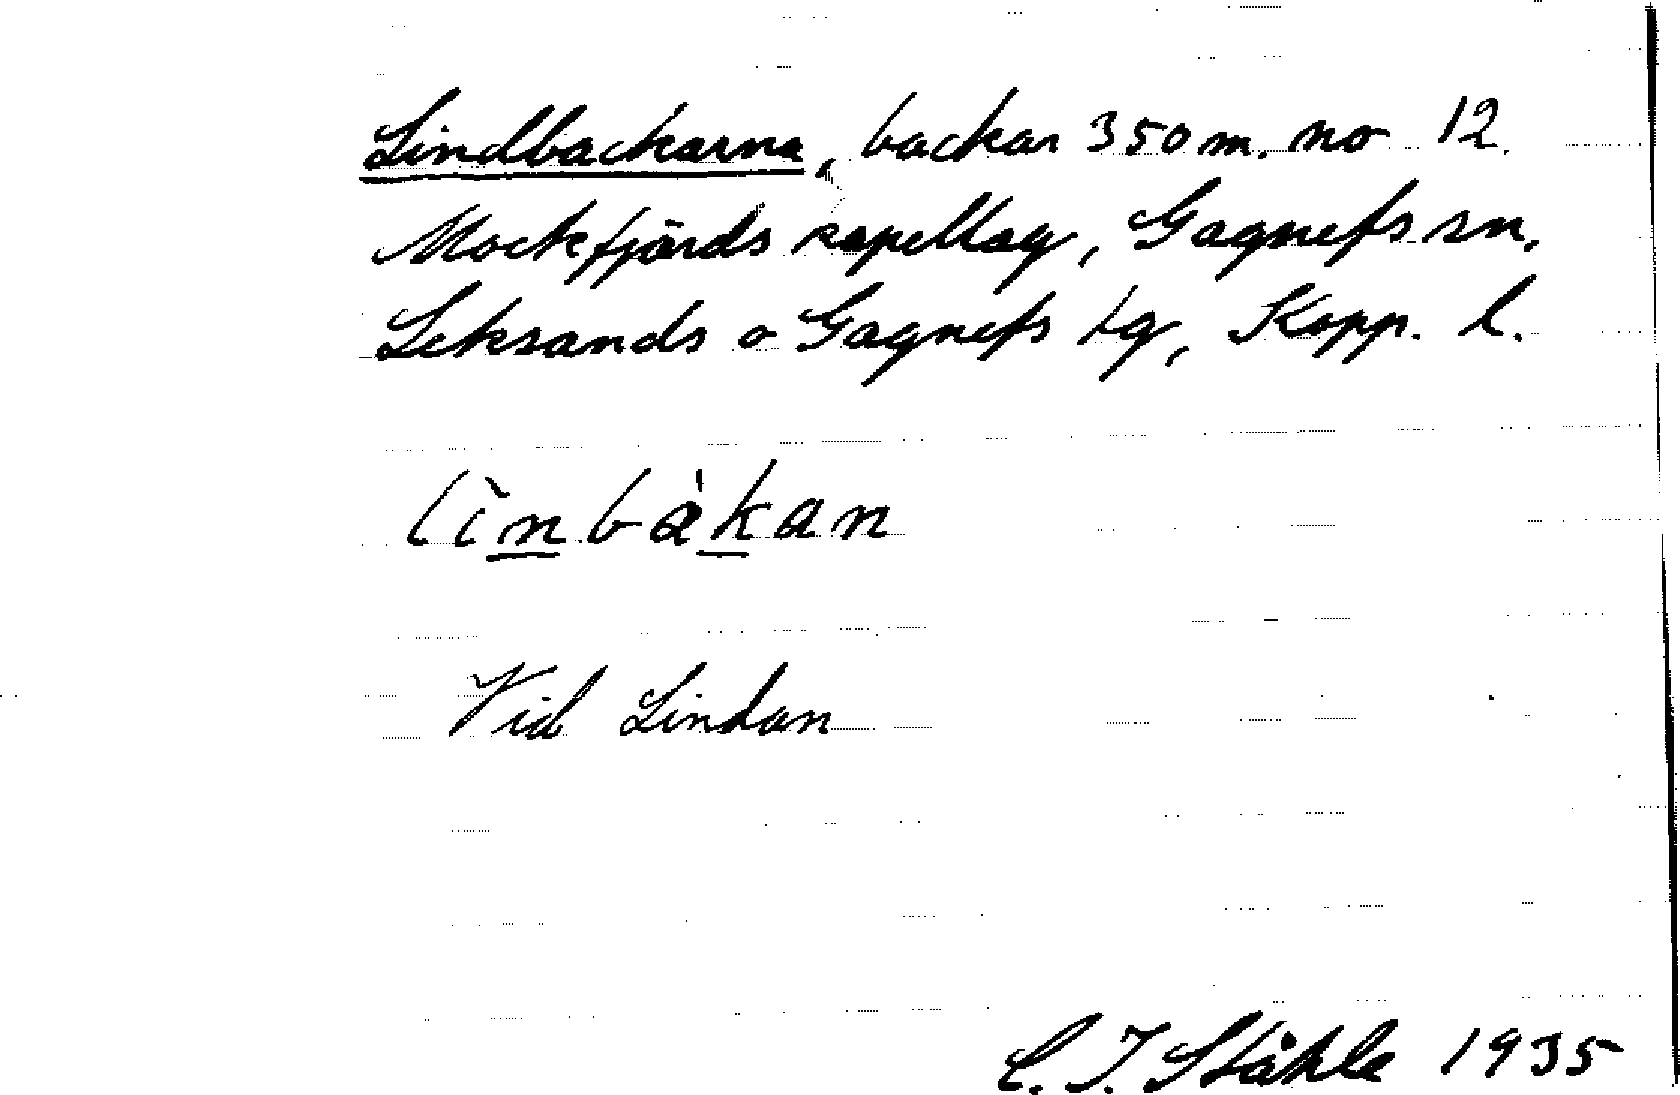 Lindbackarna, backar 350 m. no 12.
Mockfjärds kapellag, Gagnefs sn,
Leksands o Gagnefs tg, Kopp. l.
lìnbàkan
Vid Lindan
C. I. Ståhle 1935